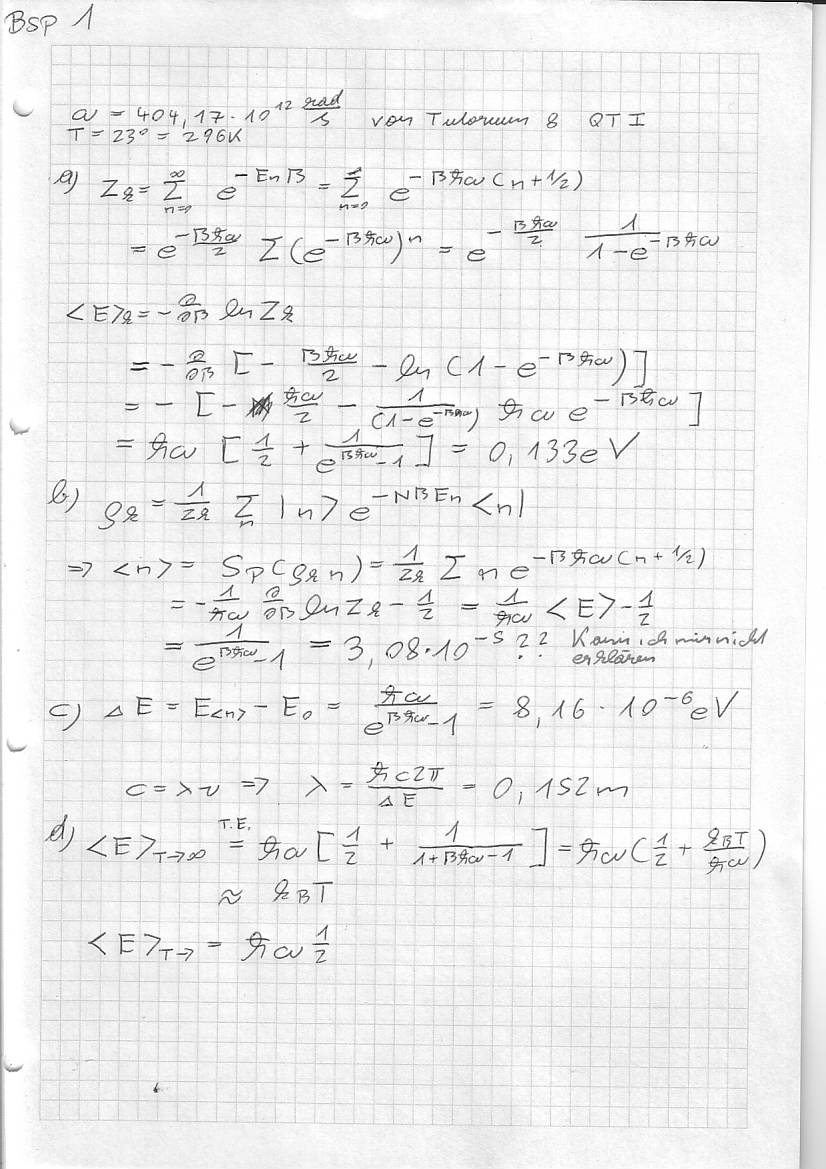 BSP 1
ω = 404,17·10^12 rad/s von Tutorium 8 QT I
T = 23° = 296K
a) Z_k = Σ_{n=0}^∞ e^{-E_n β} = Σ_{n=0}^∞ e^{-βħω(n+1/2)}
= e^{-βħω/2} Σ (e^{-βħω})^n = e^{-βħω/2} 1/(1-e^{-βħω})
<E>_k = -∂/∂β ln Z_k
= -∂/∂β [- βħω/2 - ln (1-e^{-βħω})]
= - [- ħω/2 - 1/(1-e^{-βħω}) ħω e^{-βħω}]
= ħω [1/2 + 1/(e^{βħω}-1)] = 0,133eV
b) ρ_k = 1/Z_k Σ_n |n> e^{-NβE_n} <n|
=> <n> = Sp(ρ_k n) = 1/Z_k Σ n e^{-βħω(n+1/2)}
= -1/ħω ∂/∂β ln Z_k - 1/2 = 1/ħω <E> - 1/2
= 1/(e^{βħω}-1) = 3,08·10^{-5} ?? Kann ich mir nicht
erklären
c) ΔE = E_{<n>} - E_0 = ħω/(e^{βħω}-1) = 8,16·10^{-6}eV
c = λν => λ = ħc2π/ΔE = 0,152m
d) <E>_{T→∞} =^{T.E.} ħω [1/2 + 1/(1+βħω-1)] = ħω(1/2 + k_BT/ħω)
≈ k_BT
<E>_{T→} = ħω 1/2